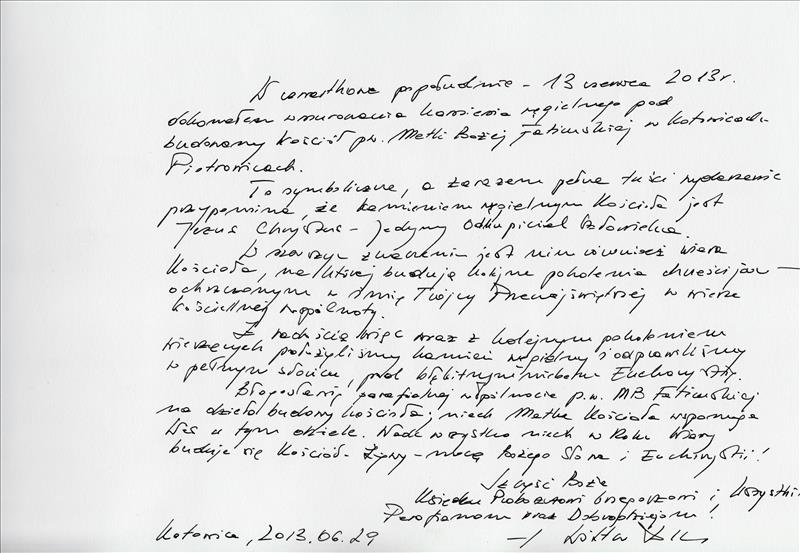 W czwartkowe popołudnie - 13 czerwca 2013 r.
dokonałem wmurowania kamienia węgielnego pod
budowany kościół pw. Matki Bożej Fatimskiej w Katowicach-
Piotrowicach.
To symboliczne, a zarazem pełne treści wydarzenie
przypomina, że kamieniem węgielnym Kościoła jest
Jezus Chrystus - jedyny Odkupiciel człowieka.
W szerszym znaczeniu jest nim również wiara
Kościoła, na której budują kolejne pokolenia chrześcijan -
ochrzczonych w imię Trójcy Przenajświętszej w wierze
kościelnej wspólnoty.
Z radością więc wraz z kolejnym pokoleniem
wierzących położyliśmy kamień węgielny i odprawiliśmy
w pełnym słońcu, pod błękitnym niebem Eucharystię.
Błogosławię parafialnej wspólnocie p.w. MB Fatimskiej
na dzieło budowy kościoła; niech Matka Kościoła wspomaga
Was w tym dziele. Nade wszystko niech w Roku Wiary
buduje się Kościół Żywy - mocą Bożego Słowa i Eucharystii!
Szczęść Boże
Księdzu Proboszczowi Grzegorzowi i Wszystkim
Parafianom oraz Dobrodziejom!
Katowice, 2013.06.29 Wiktor